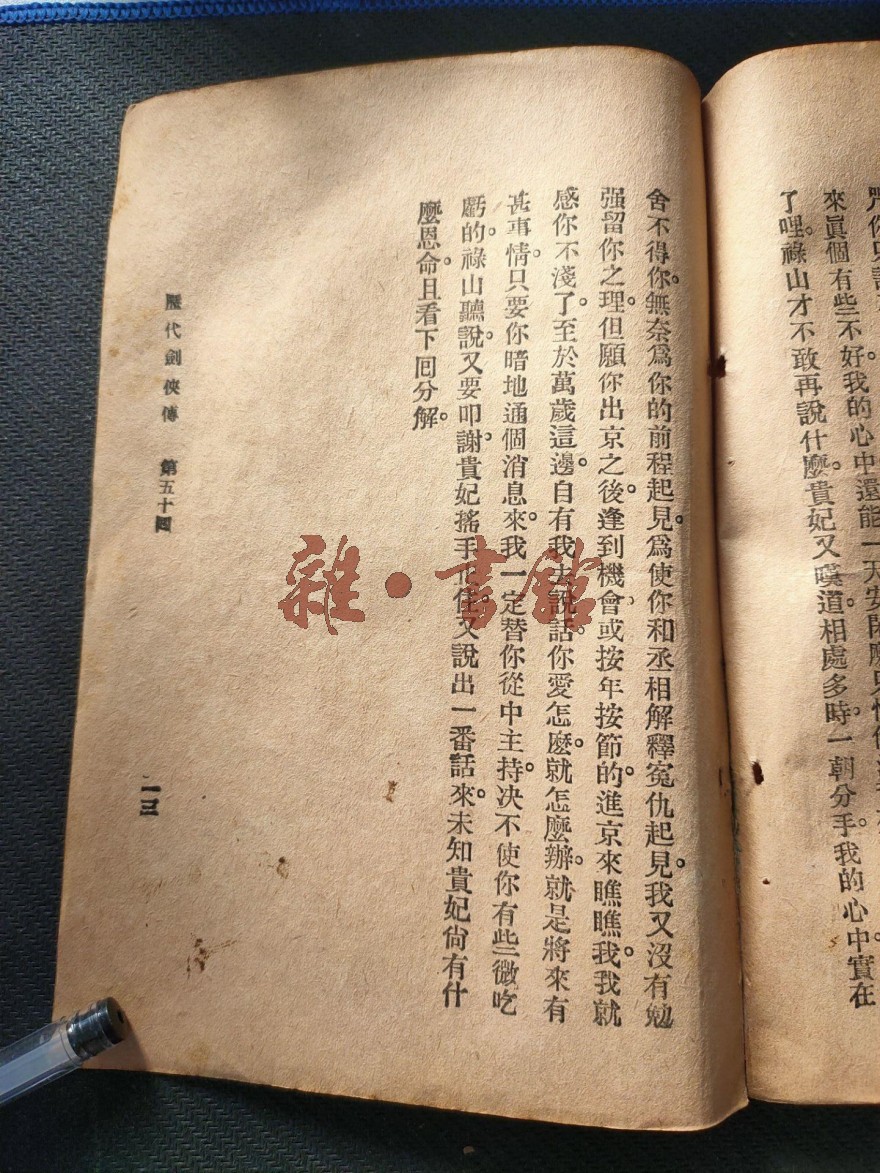 來眞個有些不好。我的心中還能一天安閑麼。只
了哩。祿山才不敢再說什麼。貴妃又嘆道。相處多時。一朝分手。我的心中實在
舍不得你。無奈爲你的前程起見。爲使你和丞相解釋冤仇起見。我又沒有勉
强留你之理。但願你出京之後。逢到機會。或按年按節的。進京來瞧瞧我。我就
感你不淺了。至於萬歲這邊。自有我去說話。你愛怎麼。就怎麼辦。就是將來有
甚事情。只要你暗地通個消息來。我一定替你從中主持。决不使你有些微吃
虧的。祿山聽說。又要叩謝。貴妃搖手止住。又說出一番話來。未知貴妃尙有什
麼恩命。且看下回分解。
歷代劍俠傳 第五十回
一三
雜·書館